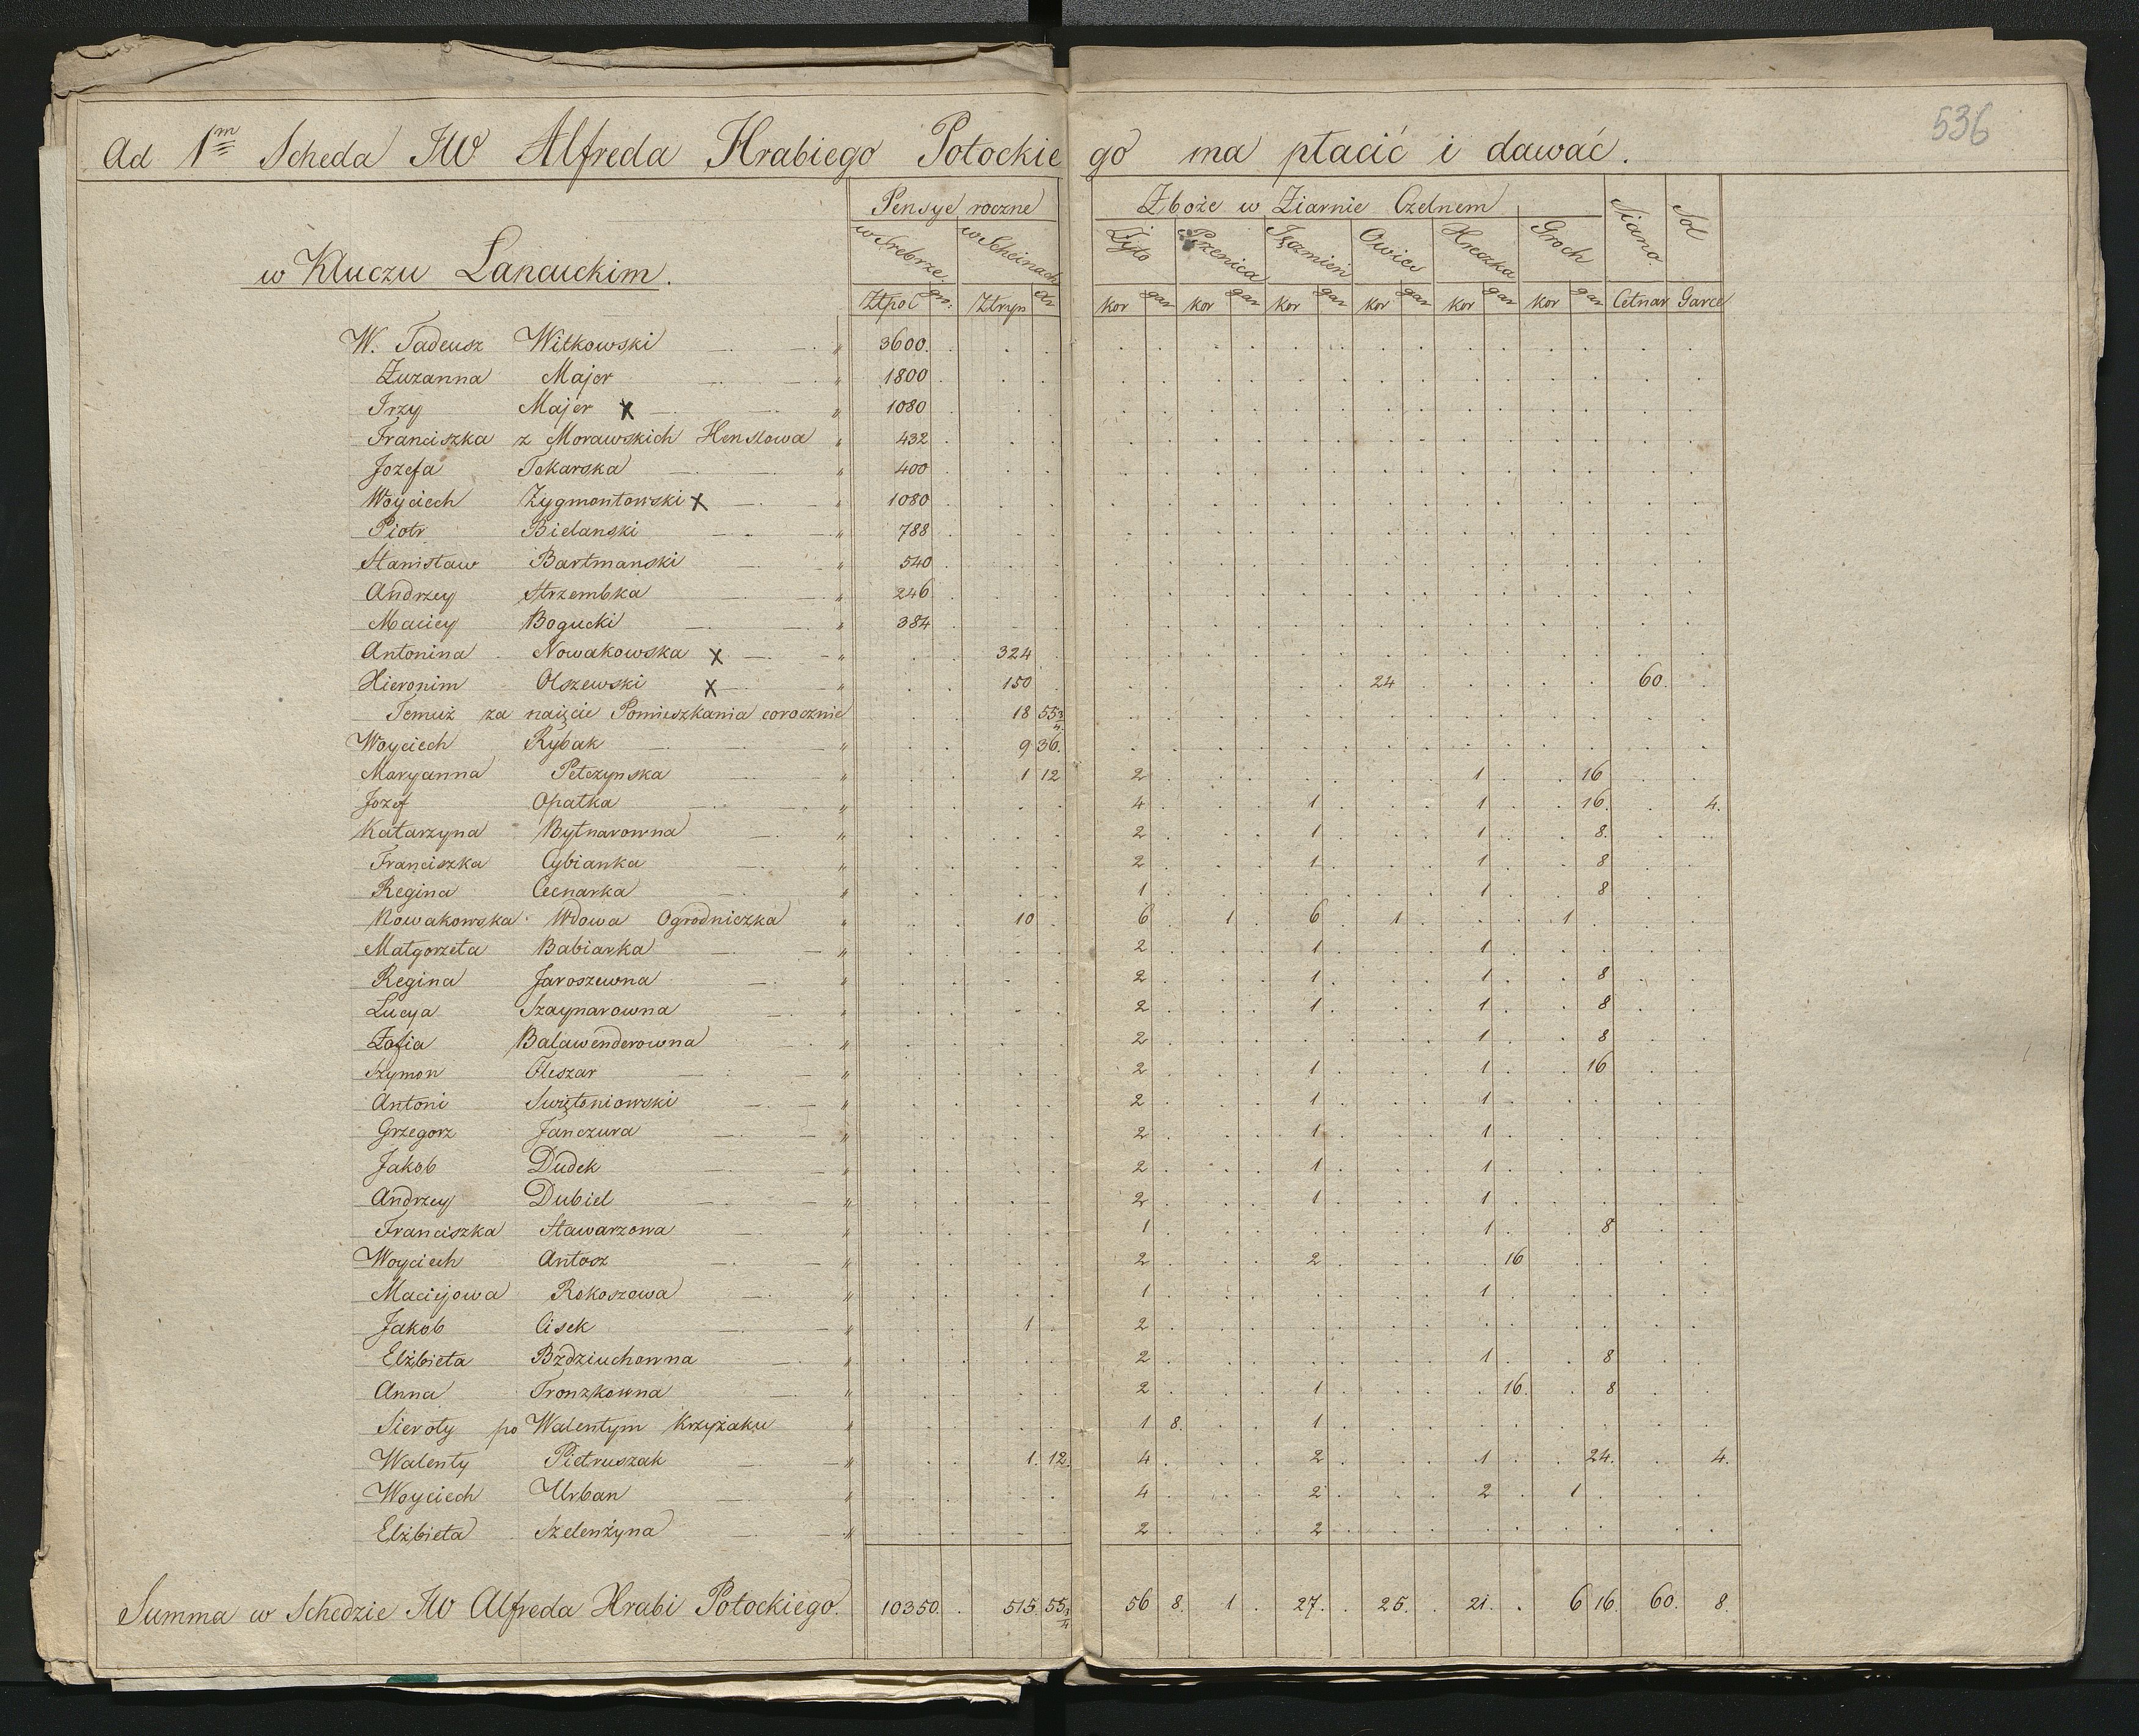 536
Ad 1m Scheda JW Alfreda Hrabiego Potockiego ma płacić i dawać.
w Kluczu Lancuckim.
Pensye roczne Zboże w Ziarnie Czelnem Siano Sol
w Srebrze w Scheinach Żyto Pszenica Jęczmień Owies Hreczka Groch
Złpol gro: Złryn Xr kor gar kor gar kor gar kor gar kor gar kor gar Cetnar Garce
W. Tadeusz Witkowski 3600.
Zuzanna Majer 1800
Jrzy Majer x 1080
Franciszka z Morawskich Henslowa 432
Jozefa Tokarska 400
Woyciech Zygmontowski x 1080
Piotr Bielanski 788
Stanisław Bartmanski 540
Andrzey Strzembka 246
Maciey Bogucki 384
Antonina Nowakowska x 324
Hieronim Olszewski x 150 24 60
Temuż za naięcie Pomieszkania corocznie 18 55 3/4
Woyciech Rybak 9 36.
Maryanna Petczynska 1 12 2 1 16
Jozef Opatka 4 1 1 16 4.
Katarzyna Bytnarowna 2 1 1 8.
Franciszka Cybianka 2 1 1 8
Regina Cecnarka 1 1 8
Nowakowska Wdowa Ogrodniczka 10 6 1 6 1 1
Małgorzeta Babiarka 2 1 1
Regina Jaroszewna 2 1 1 8
Lucya Szaynarowna 2 1 1 8
Zofia Balawenderowna 2 1 8
Szymon Fleszar 2 1 1 16
Antoni Swiętoniowski 2 1 1
Grzegorz Janczura 2 1 1
Jakob Dudek 2 1 1
Andrzey Dubiel 2 1 1
Franciszka Stawarzowa 1 1 8
Woyciech Antosz 2 2 16
Maciejowa Rokoszowa 1 1
Jakob Cisek 1 2
Elżbieta Bzdziuchowna 2 1 8
Anna Fronzkowna 2 1 16. 8
Sieroty po Walentym Krzyżaku 1 8. 1
Walenty Pietruszak 1. 12. 4 2 1 24. 4.
Woyciech Urban 4 2 2 1
Elżbieta Szelenżyna 2 2
Summa w Schedzie JW Alfreda Hrabi Potockiego. 10350. 515. 55 3/4 56 8. 1 27. 25. 21. 6 16. 60. 8.